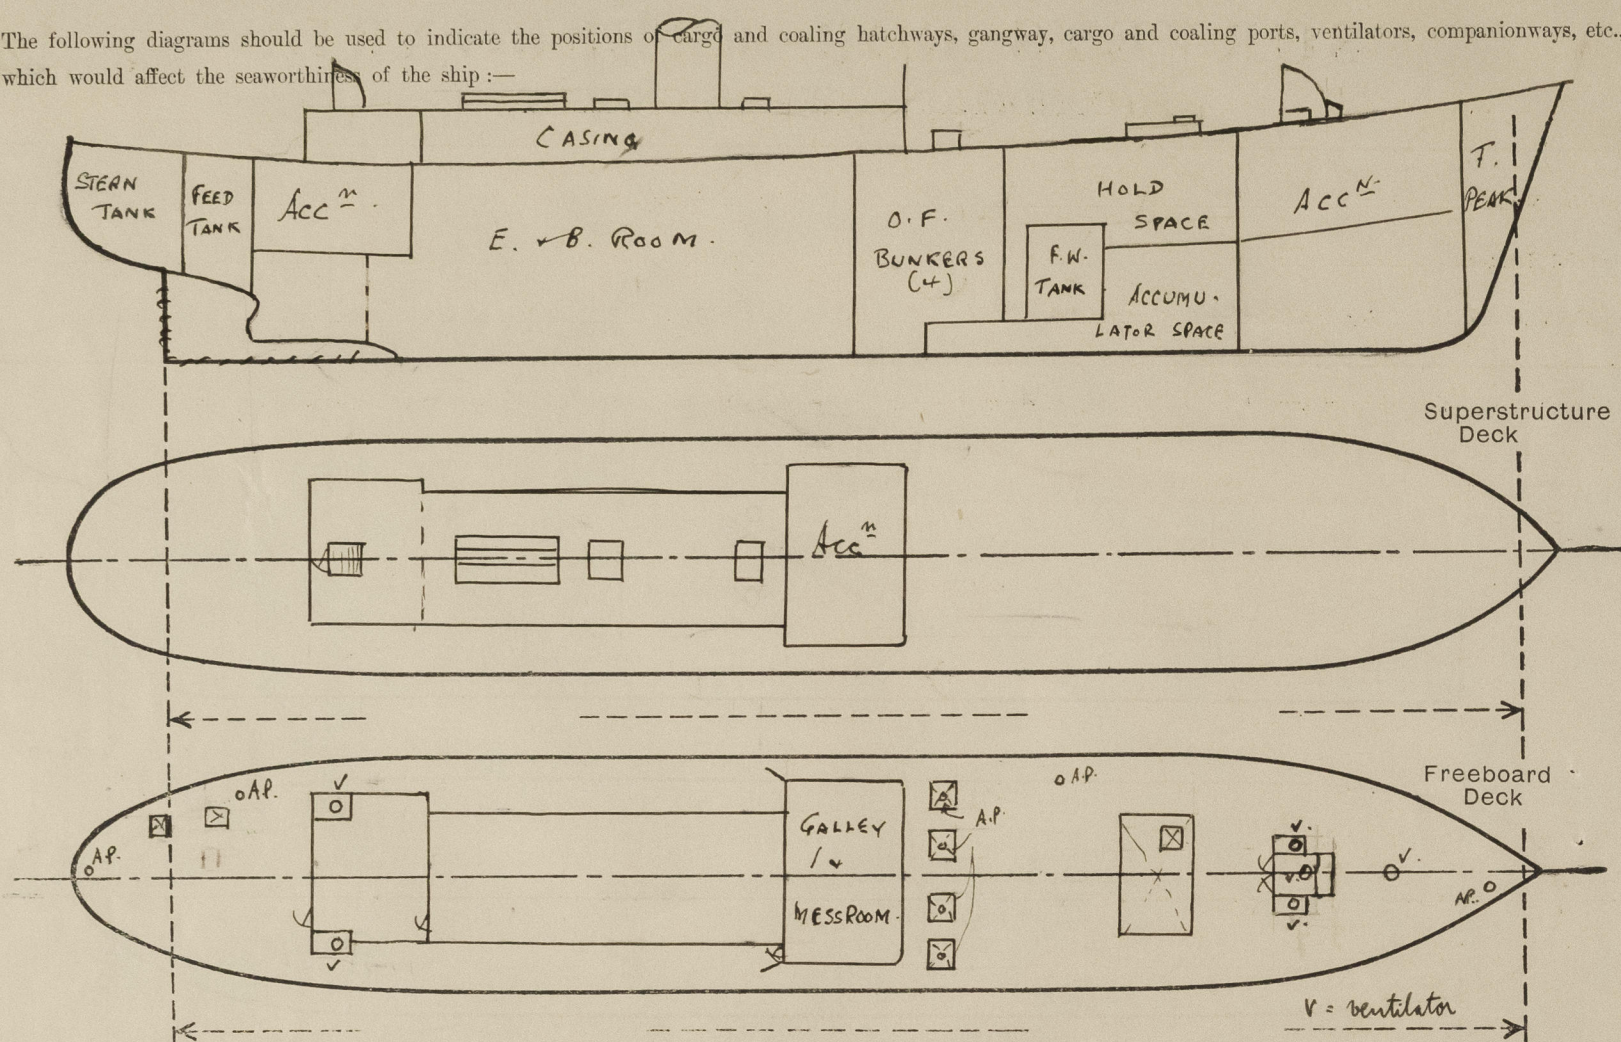 The following diagrams should be used to indicate the positions of cargo and coaling hatchways, gangway, cargo and coaling ports, ventilators, companionways, etc.,
which would affect the seaworthiness of the ship :—
CASING
STERN
TANK
FEED
TANK
Accⁿ.
E. & B. ROOM.
O.F.
BUNKERS
(4)
HOLD
SPACE
F.W.
TANK
ACCUMU-
LATOR SPACE
Accᴺ.
F.
PEAK
Superstructure
Deck
Accⁿ
Freeboard
Deck
A.P.
A.P.
V
V
GALLEY
MESSROOM.
A.P.
A.P.
V.
V.
V.
V.
A.P.
V = ventilator